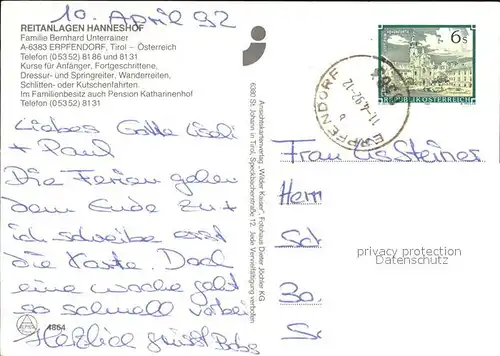 10. April 92
REITANLAGEN HANNESHOF
Familie Bernhard Unterrainer
A-6383 ERPFENDORF, Tirol – Österreich
Telefon (05352) 8186 und 8131
Kurse für Anfänger, Fortgeschrittene,
Dressur- und Springreiter, Wanderreiten,
Schlitten- oder Kutschenfahrten.
Im Familienbesitz auch Pension Katharinenhof
Telefon (05352) 8131
Liebes Gotte
+ Paul
Die Ferien gehen
dem Ende zu +
ich schreibe erst
die Karte. Doch
eine woche geht
so schnell vorbei
Herzlich grüsst Babs
4864
Ansichtskartenverlag "Wilder Kaiser", Fotohaus Dieter Jöchler KG
6380 St. Johann in Tirol, Speckbacherstraße 12. Jede Vervielfältigung verboten
6 S
REPUBLIK ÖSTERREICH
ERPFENDORF
11.-4.92-12
b
Frau Steiner
Herrn
privacy protection
Datenschutz